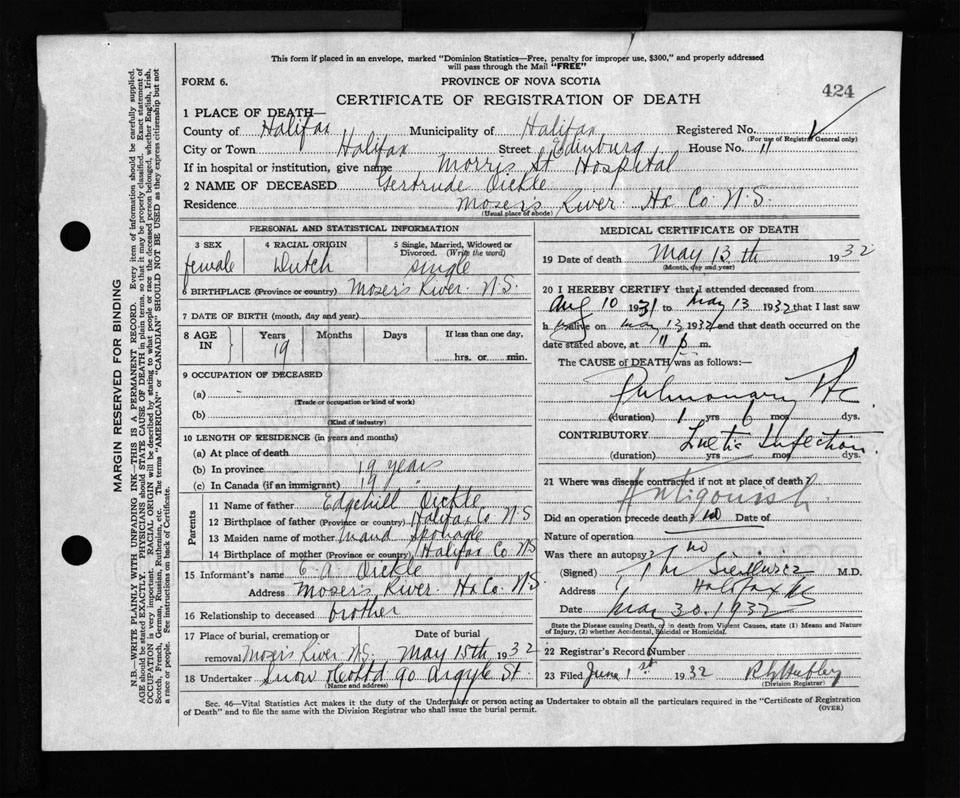 This form if placed in an envelope, marked "Dominion Statistics—Free, penalty for improper use, $300," and properly addressed
will pass through the Mail "FREE"
FORM 6.
PROVINCE OF NOVA SCOTIA
424
CERTIFICATE OF REGISTRATION OF DEATH
1 PLACE OF DEATH—
County of Halifax Municipality of Halifax Registered No.
(For use of Registrar General only)
City or Town Halifax Street Edinburg House No. 11
If in hospital or institution, give name Morris St Hospital
2 NAME OF DECEASED Gertrude Dickle
Residence Mosers River Hx Co N.S.
(Usual place of abode)
PERSONAL AND STATISTICAL INFORMATION
3 SEX 4 RACIAL ORIGIN 5 Single, Married, Widowed or
Divorced. (Write the word)
female Dutch single
6 BIRTHPLACE (Province or country) Moser's River N.S.
7 DATE OF BIRTH (month, day and year)
8 AGE IN Years Months Days If less than one day,
19 hrs. or min.
9 OCCUPATION OF DECEASED
(a)
(Trade or occupation or kind of work)
(b)
(Kind of industry)
10 LENGTH OF RESIDENCE (in years and months)
(a) At place of death
(b) In province 19 years
(c) In Canada (if an immigrant) 19 "
Parents
11 Name of father Edgehill Dickle
12 Birthplace of father (Province or country) Halifax Co N.S
13 Maiden name of mother Maud Sponagle
14 Birthplace of mother (Province or country) Halifax Co NS
15 Informant's name E. A. Dickle
Address Mosers River Hx Co. NS
16 Relationship to deceased brother
17 Place of burial, cremation or Date of burial
removal Mozers River N.S. May 15th, 1932
18 Undertaker Snow & Co Ltd 90 Argyle St
(Name and address)
MEDICAL CERTIFICATE OF DEATH
19 Date of death May 13th 1932
(Month, day and year)
20 I HEREBY CERTIFY that I attended deceased from
Aug 10 1931 to May 13 1932 that I last saw
h alive on May 13 1932 and that death occurred on the
date stated above, at 11 p m.
The CAUSE OF DEATH was as follows:—
Pulmonary Tbc
(duration) 1 yrs 6 mos dys.
CONTRIBUTORY Luetic Infection
(duration) yrs mos dys.
21 Where was disease contracted if not at place of death?
Antigonish
Did an operation precede death? no Date of
Nature of operation
Was there an autopsy? no
(Signed) M.D.
Address Halifax NS
Date May 30. 1932
State the Disease causing Death, or, in death from Violent Causes, state (1) Means and Nature
of Injury, (2) whether Accidental, Suicidal or Homicidal.
22 Registrar's Record Number
23 Filed June 1st 1932
Division Registrar
Sec. 46—Vital Statistics Act makes it the duty of the Undertaker or person acting as Undertaker to obtain all the particulars required in the "Certificate of Registration
of Death" and to file the same with the Division Registrar who shall issue the burial permit.
(OVER)
MARGIN RESERVED FOR BINDING
N.B.—WRITE PLAINLY WITH UNFADING INK—THIS IS A PERMANENT RECORD. Every item of information should be carefully supplied.
AGE should be stated EXACTLY. PHYSICIANS should STATE CAUSE OF DEATH in plain terms, so that it may be properly classified. Exact statement of
OCCUPATION is very important. RACIAL ORIGIN will be described by stating to what people or race the deceased person belonged, whether English, Irish,
Scotch, French, German, Russian, Ruthenian, etc. The terms "AMERICAN" or "CANADIAN" SHOULD NOT BE USED as they express citizenship but not
a race or people. See instructions on back of Certificate.